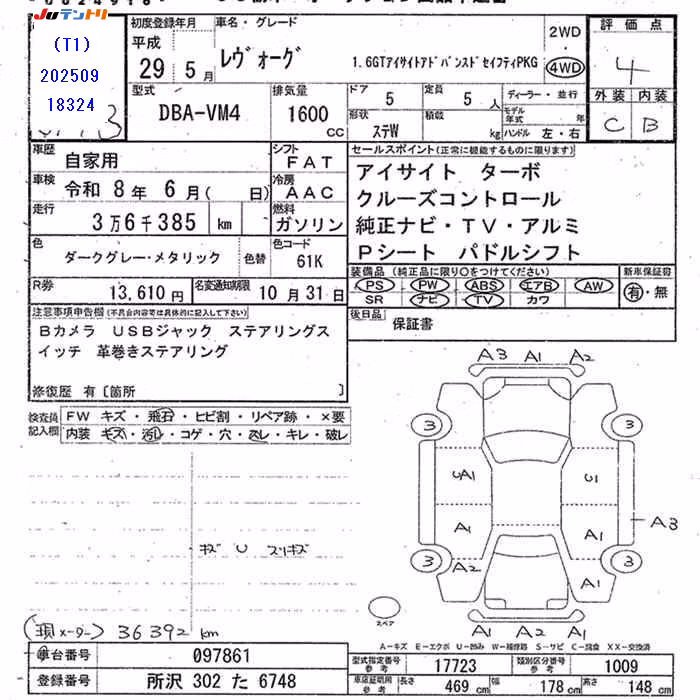 JUテントリ
(T1)
202509
18324
初度登録年月
平成
29年 5月
車名・グレード
レヴォーグ
1.6GTアイサイトアドバンスドセイフティPKG
2WD
4WD
評価点
4
外装 内装
C B
型式
DBA-VM4
排気量
1600
cc
ドア
5
定員
5人
形状
ステW
積載
kg
ディーラー・並行
モデル年式 年
ハンドル 左・右
車歴
自家用
シフト
FAT
車検
令和 8年 6月( 日)
冷房
AAC
走行
3万6千385 km
燃料
ガソリン
色
ダークグレー・メタリック
色替
色コード
61K
R券
13,610円
名変通知期限
10月31日
セールスポイント(正常に機能するものに限ります)
アイサイト ターボ
クルーズコントロール
純正ナビ・TV・アルミ
Pシート パドルシフト
装備品(純正品に限り○をつけてください)
PS PW ABS エアB AW
SR ナビ TV カワ
新車保証書
有・無
後日品
保証書
注意事項申告欄(不具合内容等は具体的に記入して下さい)
Bカメラ USBジャック ステアリングス
イッチ 革巻きステアリング
修復歴 有〔箇所 〕
検査員
記入欄
FW キズ・飛石・ヒビ割・リペア跡・×要
内装 キズ・汚レ・コゲ・穴・スレ・キレ・破レ
キズ U スリキズ
A3 A1 A2
3 3
UA1 U1
A1 A1
A3
A2 A1
3 3
A1 A1 A2
スペア
(現メーター) 36392 km
A－キズ E－エクボ U－凹み W－補修跡 S－サビ C－腐食 XX－交換済
車台番号
097861
登録番号
所沢 302 た 6748
型式指定番号
参考
17723
類別区分番号
参考
1009
車庫証明用
参考
長さ
469 cm
幅
178 cm
高さ
148 cm